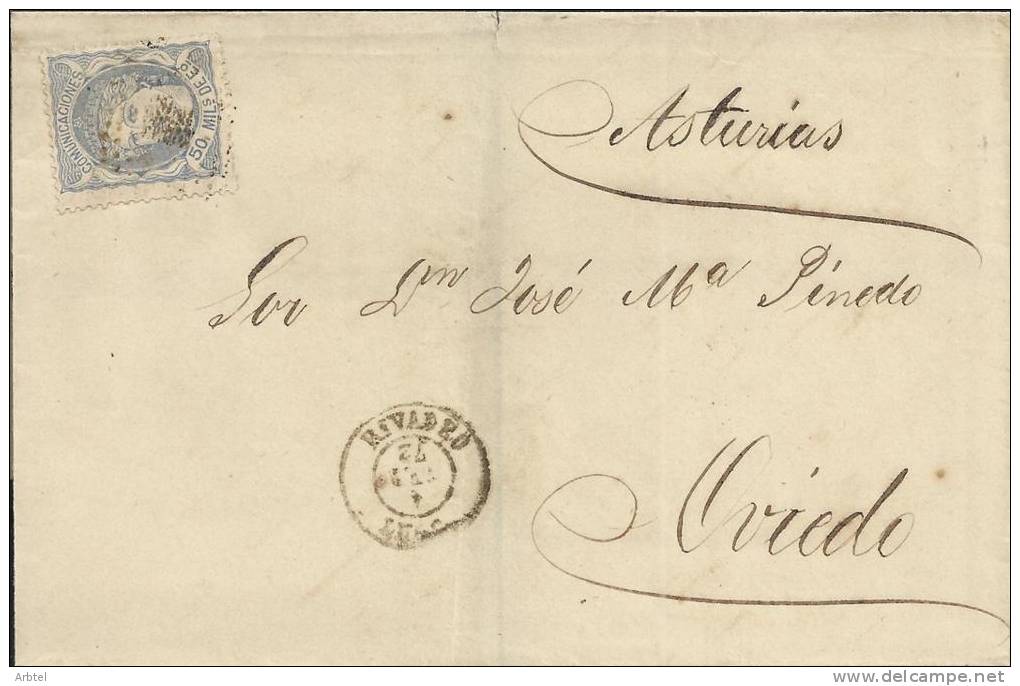 COMUNICACIONES
50 MILS DE Eº
Asturias
Sor Dn José Mª Pinedo
RIVADEO
72
LUGO
Oviedo
Arbtel
www.delcampe.net